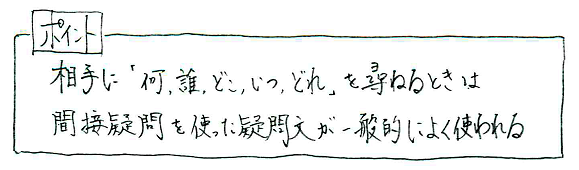 ポイント
相手に「何,誰,どこ,いつ,どれ」を尋ねるときは
間接疑問を使った疑問文が一般的によく使われる